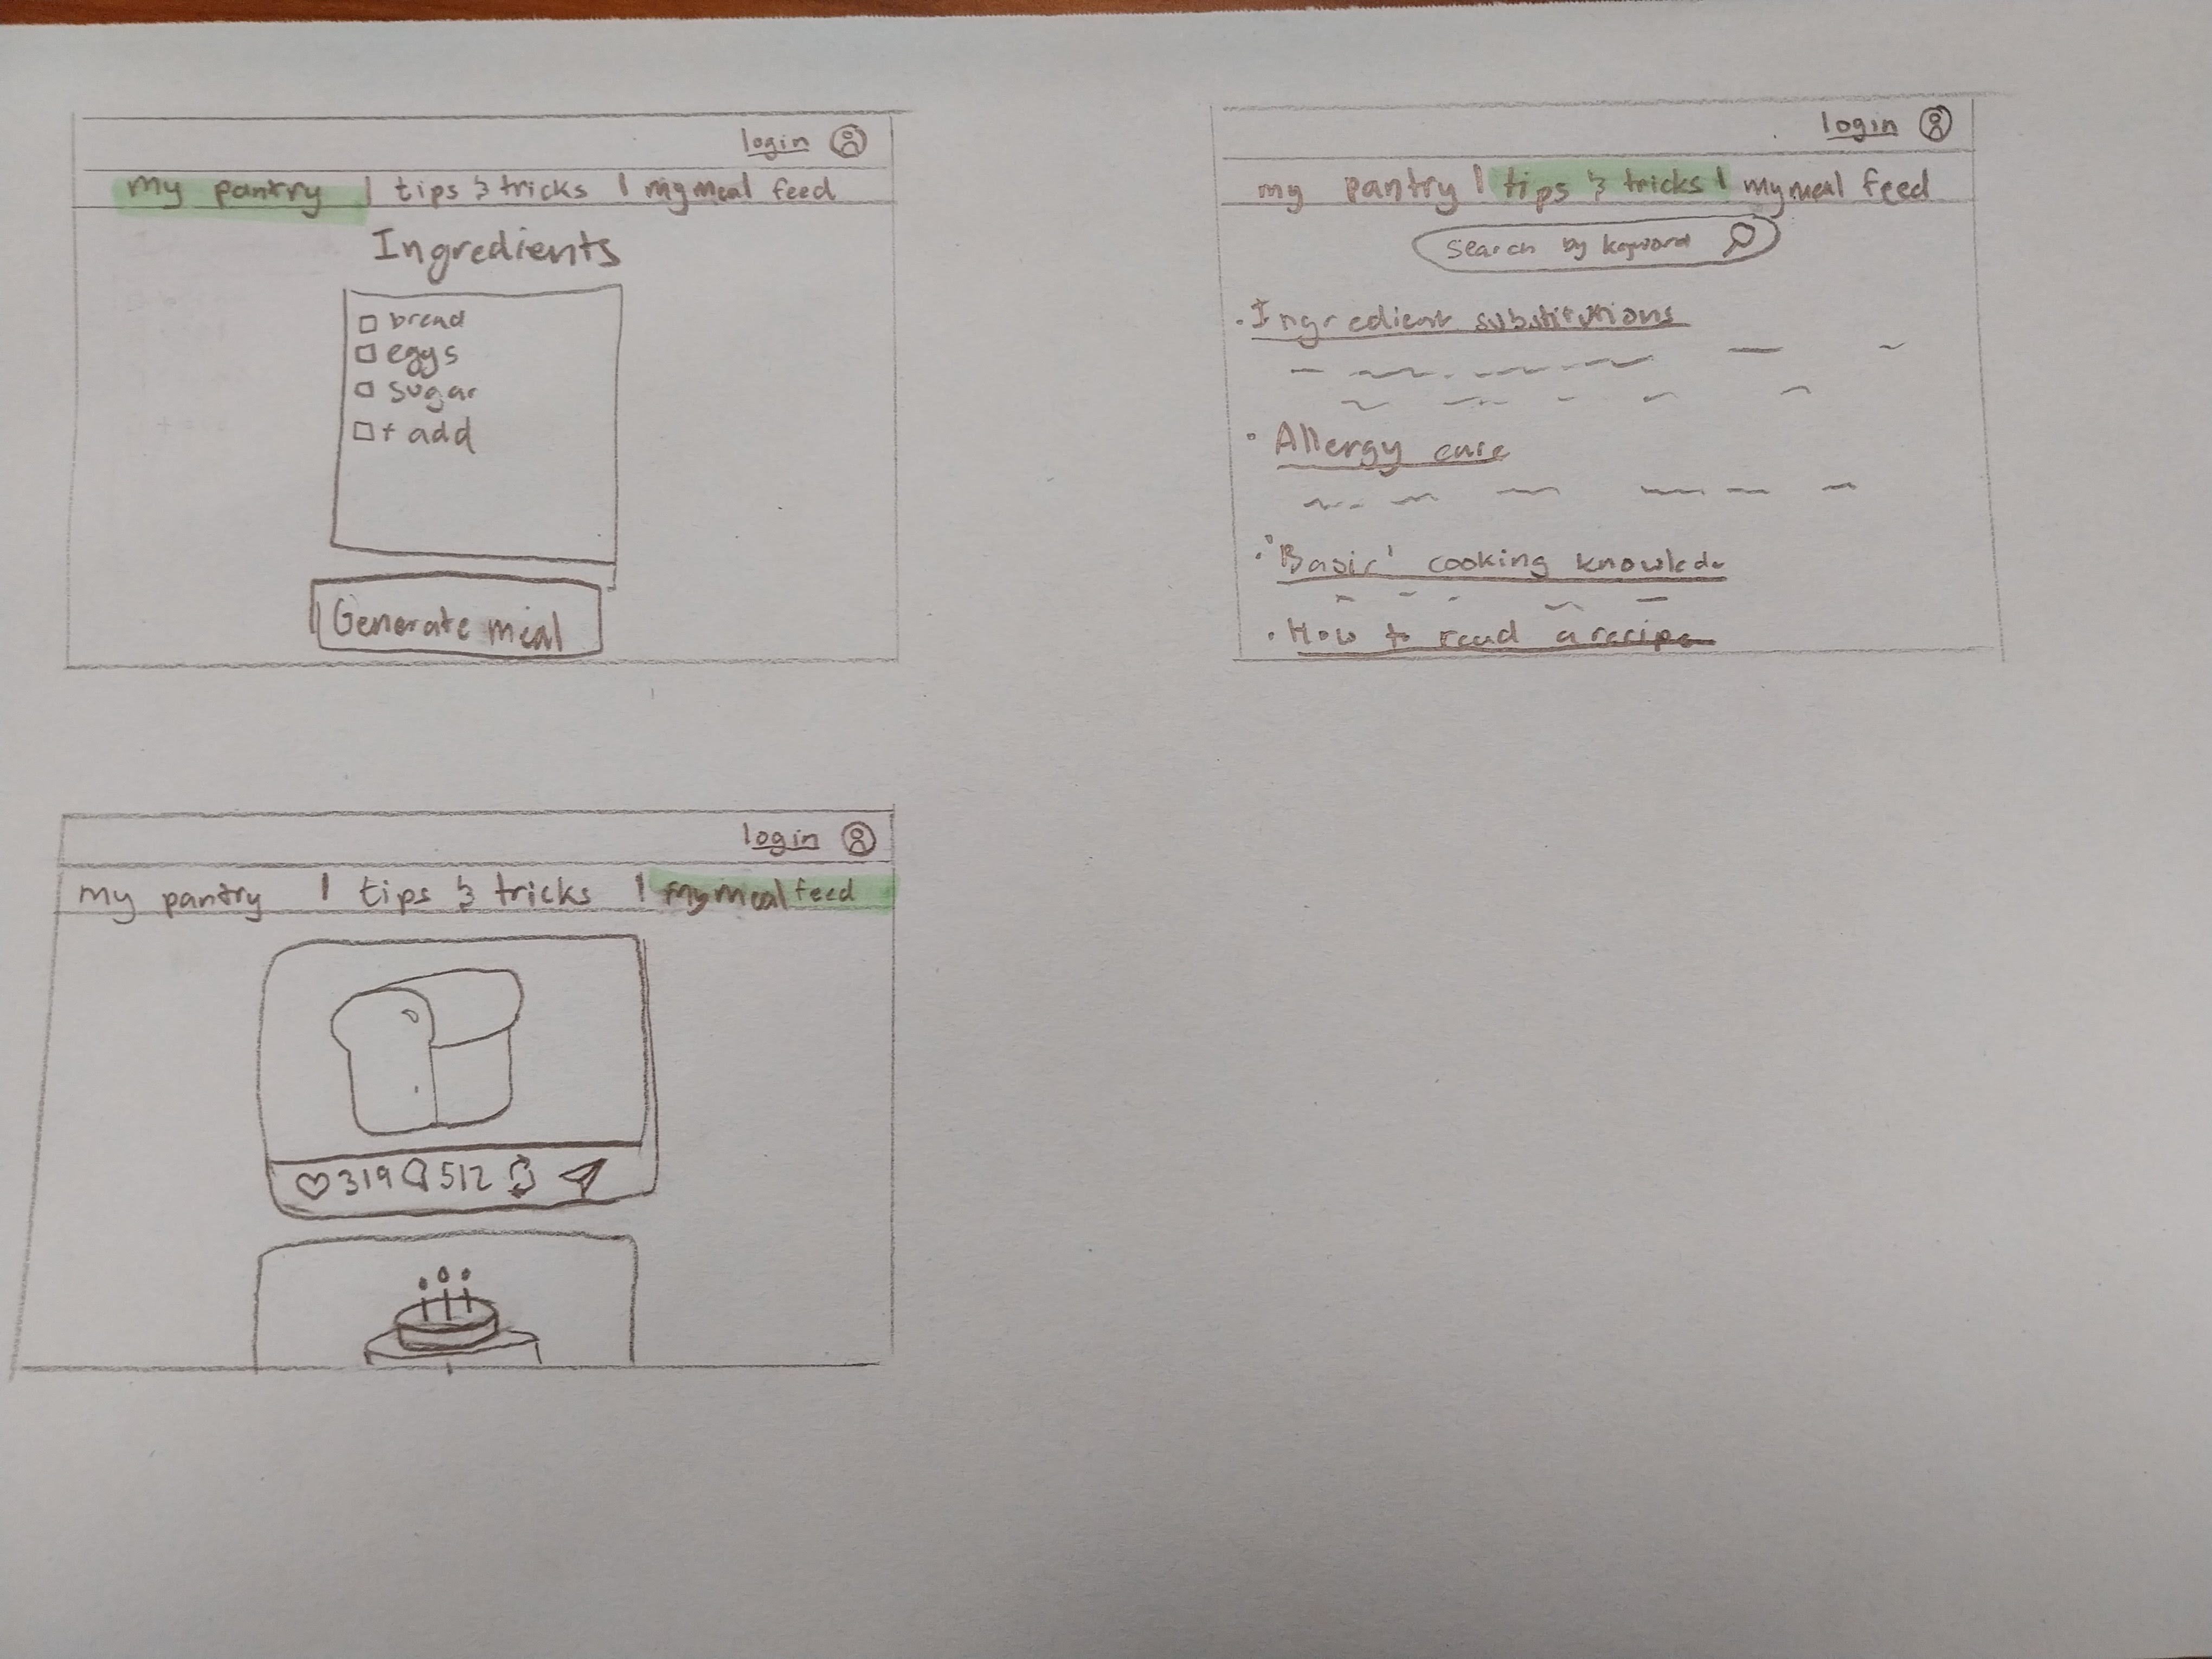 login
my pantry | tips & tricks | my meal feed
Ingredients
bread
eggs
sugar
+ add
Generate meal
login
my pantry | tips & tricks | my meal feed
Search by keyword
· Ingredient substitutions
· Allergy care
· 'Basic' cooking knowledge
· How to read a recipe
login
my pantry | tips & tricks | my meal feed
319 512